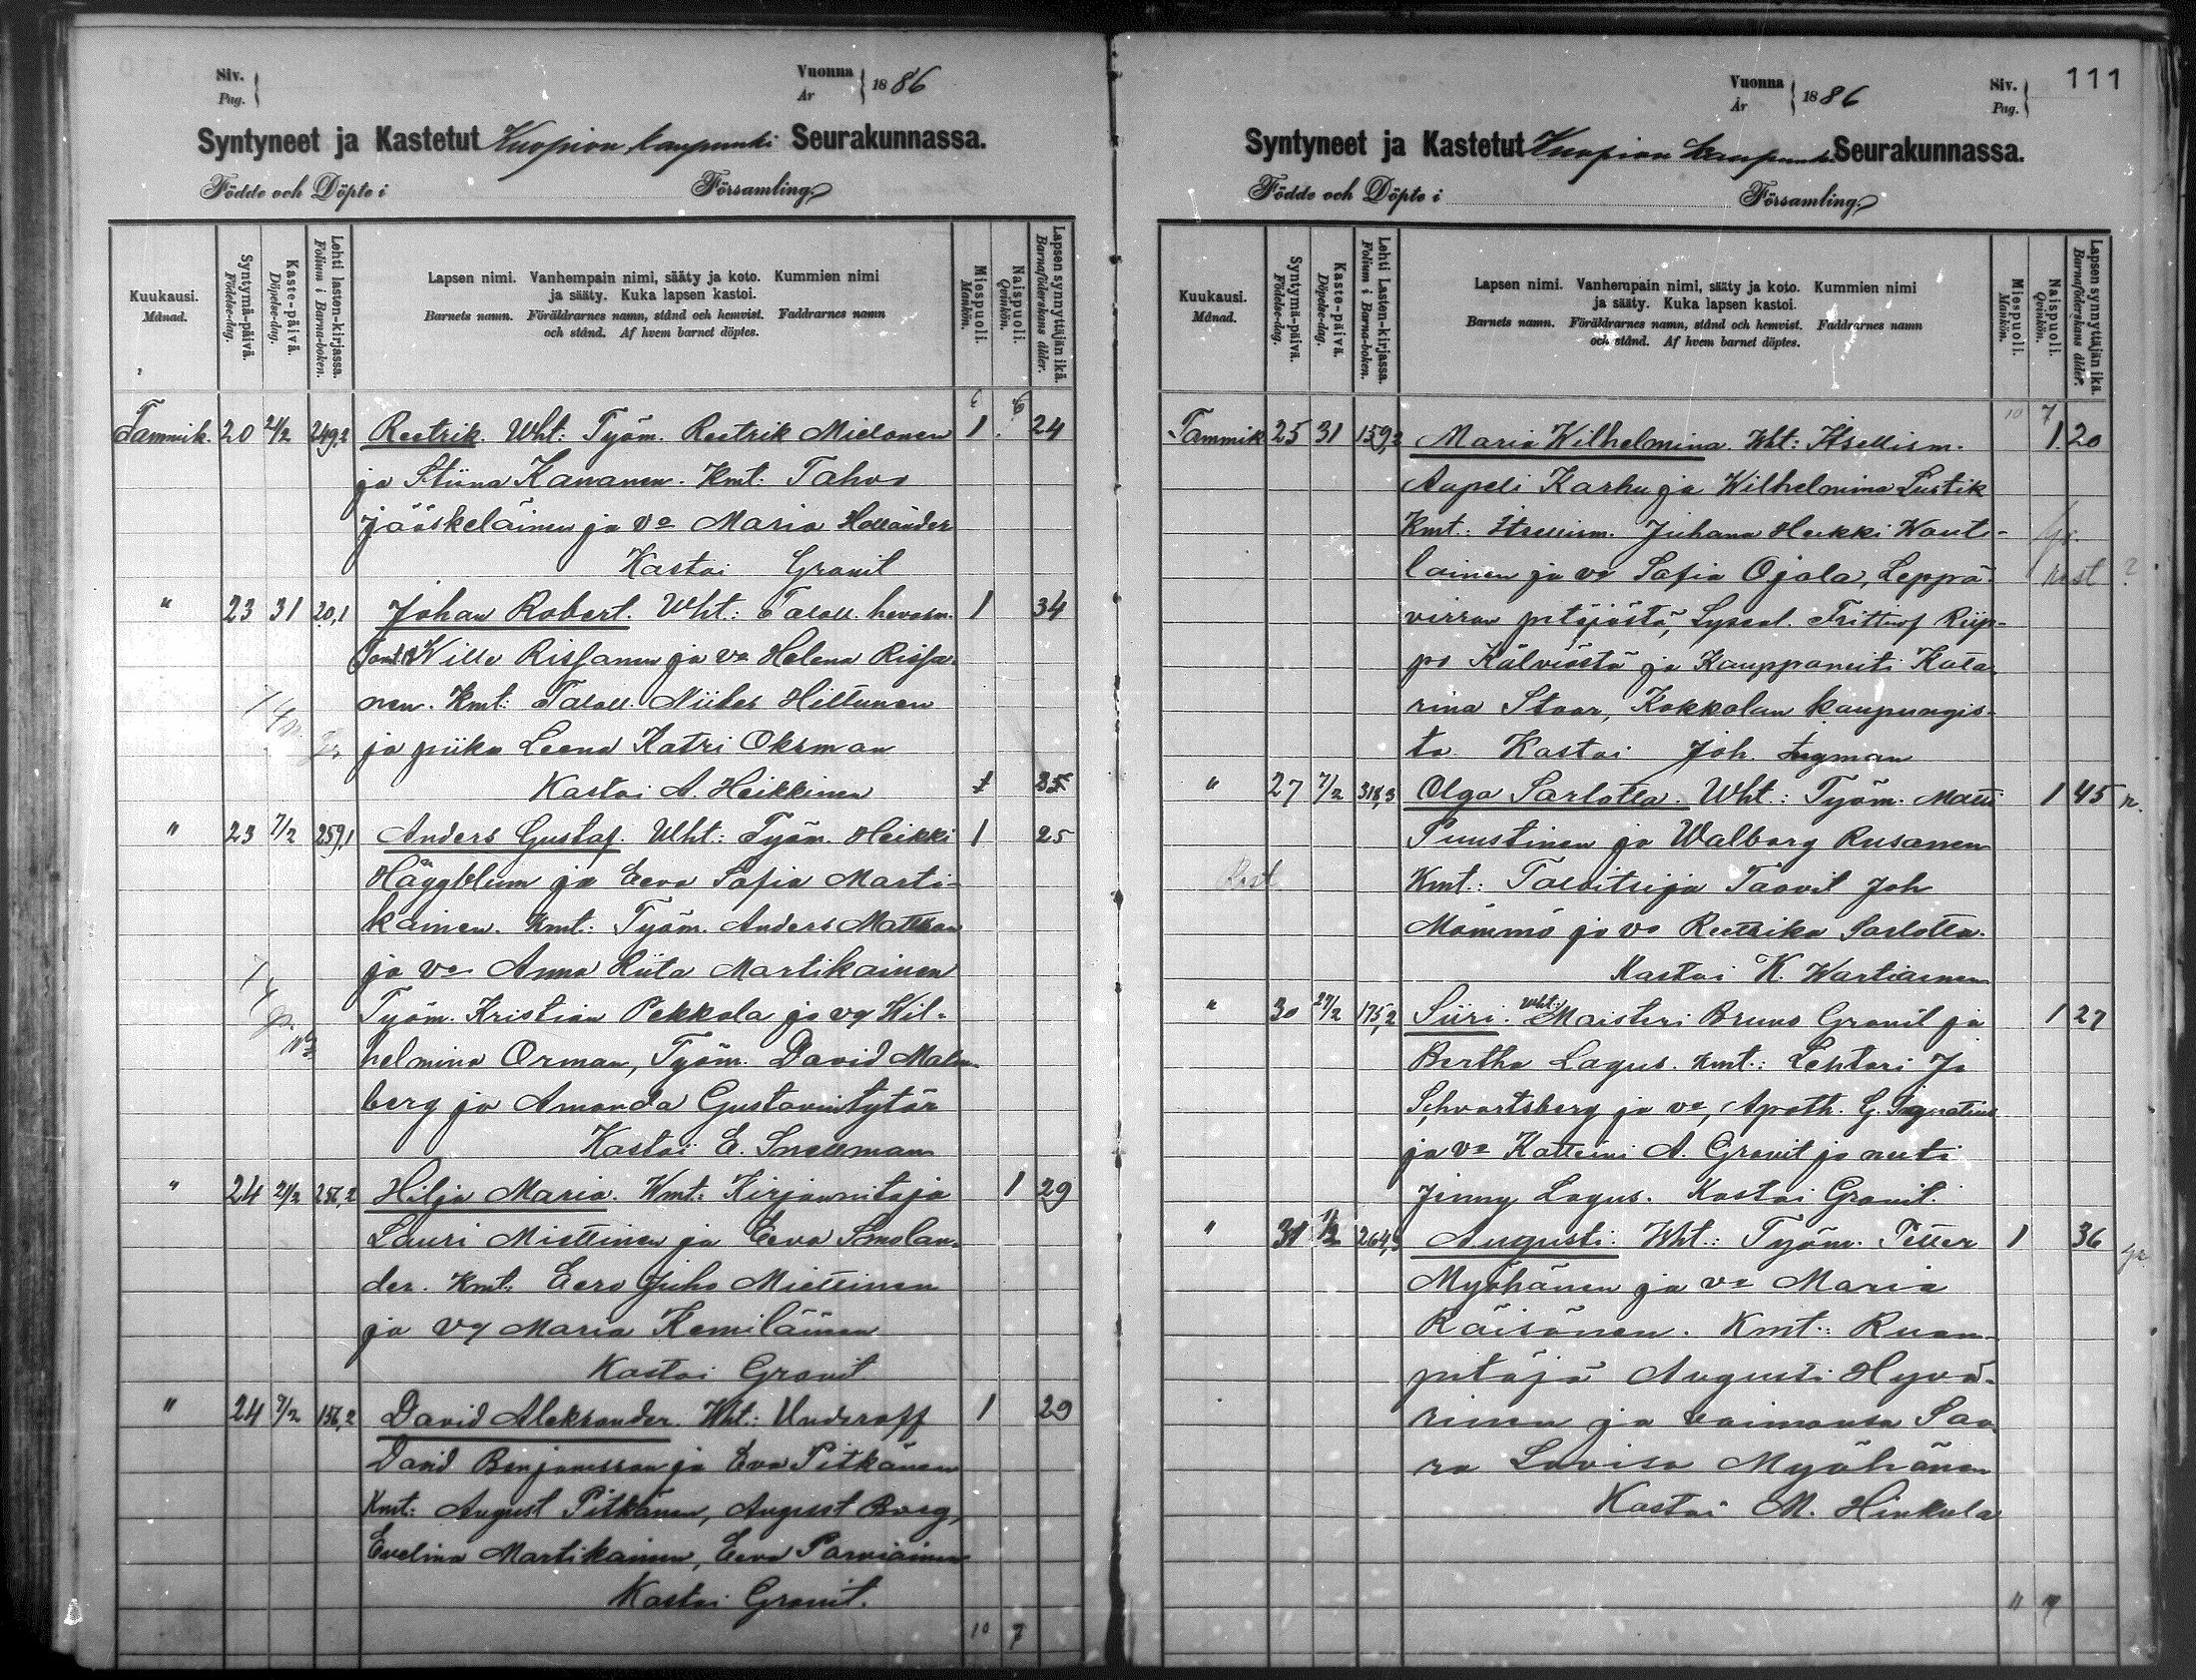 Siv.
Pag.
Vuonna
År
1886
Syntyneet ja Kastetut Kuopion kaupunki Seurakunnassa.
Födde och Döpte i Församling.
Kuukausi.
Månad.
Syntymä-päivä.
Födelse-dag.
Kaste-päivä.
Döpelse-dag.
Lehti lasten-kirjassa.
Folium i Barna-boken.
Lapsen nimi. Vanhempain nimi, sääty ja koto. Kummien nimi
ja sääty. Kuka lapsen kastoi.
Barnets namn. Föräldrarnes namn, stånd och hemvist. Faddrarnes namn
och stånd. Af hvem barnet döptes.
Miespuoli.
Mankön.
Naispuoli.
Qvinkön.
Lapsen synnyttäjän ikä.
Barnaföderskans ålder.
Tammik. 20 2/2 249,2 Reetrik. Wht: Työm. Reetrik Mielonen 1 24
ja Stiina Kananen. Kmt: Tahvo
Jääskeläinen ja vo Maria Holländer
Kastoi Granit
" 23 31 20,1 Johan Robert. Wht: Taloll. hevosm. 1 34
Wille Rissanen ja vo Helena Rissa-
nen. Kmt: Taloll. Hiltunen
ja piika Leena Katri Oksman
Kastoi A. Heikkinen 1 35
" 23 7/2 259,1 Anders Gustaf. Wht: Työm. Heikki 1 25
Häggblum ja Eeva Sofia Marti-
kainen. Kmt: Työm. Anders Mattson
ja vo Anna Riita Martikainen
Työm. Kristian Pekkola ja vo Wil-
helmina Orman, Työm. David Malm-
berg ja Amanda Gustavintytär
Kastoi E. Snellman
" 24 256,2 Hilja Maria. Wmt: Kirjannitoja 1 29
Lauri Miettinen ja Eeva Smolan-
der. Kmt: Eero Juho Miettinen
ja vo Maria Kemiläinen
Kastoi Granit
" 24 7/2 156,2 David Aleksander. Wht: Underoff 1 29
David Benjamsson ja Eva Pitkänen
Kmt: August Pitkänen, August Borg,
Evelina Martikainen, Eeva Parviainen
Kastoi Granit.
10 7
Vuonna
År
1886
Siv.
Pag.
111
Syntyneet ja Kastetut Kuopion kaupunki Seurakunnassa.
Födde och Döpte i Församling.
Kuukausi.
Månad.
Syntymä-päivä.
Födelse-dag.
Kaste-päivä.
Döpelse-dag.
Lehti Lasten-kirjassa.
Folium i Barna-boken.
Lapsen nimi. Vanhempain nimi, sääty ja koto. Kummien nimi
ja sääty. Kuka lapsen kastoi.
Barnets namn. Föräldrarnes namn, stånd och hemvist. Faddrarnes namn
och stånd. Af hvem barnet döptes.
Miespuoli.
Mankön.
Naispuoli.
Qvinkön.
Lapsen synnyttäjän ikä.
Barnaföderskans ålder.
10 7
Tammik 25 31 159,2 Maria Wilhelmina. Wht: Itsellism. 1 20
Aapeli Karhu ja Wilhelmina Lustik
Kmt: Itsellism. Juhana Heikki Wout-
lainen ja vo Sofia Ojala, Leppä-
virran pitäjästä, Lyseol. Frithiof Riip-
po Kälviästä ja Kauppaneiti Kata-
rina Stoor, Kokkolan kaupungis-
ta Kastoi Joh. Ingman
" 27 7/2 318,3 Olga Sarlotta. Wht: Työm. Matti 1 45
Puustinen ja Walborg Rusanen
Kmt: Taavit Joh
Mömmö ja vo Reetrika Sarlotta.
Kastoi K. Wartiainen
" 30 27/2 175,2 Siiri. Wht: Maisteri Bruno Granit ja 1 27
Bertha Lagus. Kmt: Lehtori Ja
Schvartsberg ja vo, Apoth. G. Ignatius
ja vo Katteini A. Granit ja neiti
Jenny Lagus. Kastoi Granit.
" 31 264,3 Augusti. Wht: Työm. Petter 1 36
Myöhänen ja vo Maria
Räisänen. Kmt: Ruan-
pitäjä Augusti Hyvä-
rinen ja vaimonsa Saa-
ra Lovisa Myöhänen
Kastoi M. Hinkula